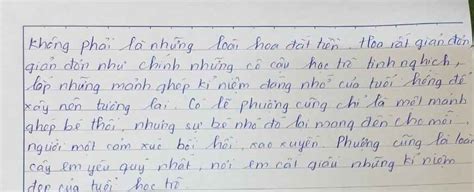 Không phải là những loài hoa đắt tiền. Hoa rất giản đơn,
giản đơn như chính những cô cậu học trò tinh nghịch,
lớp những mảnh ghép kỉ niệm đáng nhớ của tuổi hồng để
xây nên tương lai. Có lẽ phượng cũng chỉ là một mảnh
ghép bé thôi, nhưng sự bé nhỏ đó lại mang đến cho mỗi
người một cảm xúc bồi hồi, xao xuyến. Phượng cũng là loài
cây em yêu quý nhất, nơi em cất giấu những kỉ niệm
đẹp của tuổi học trò